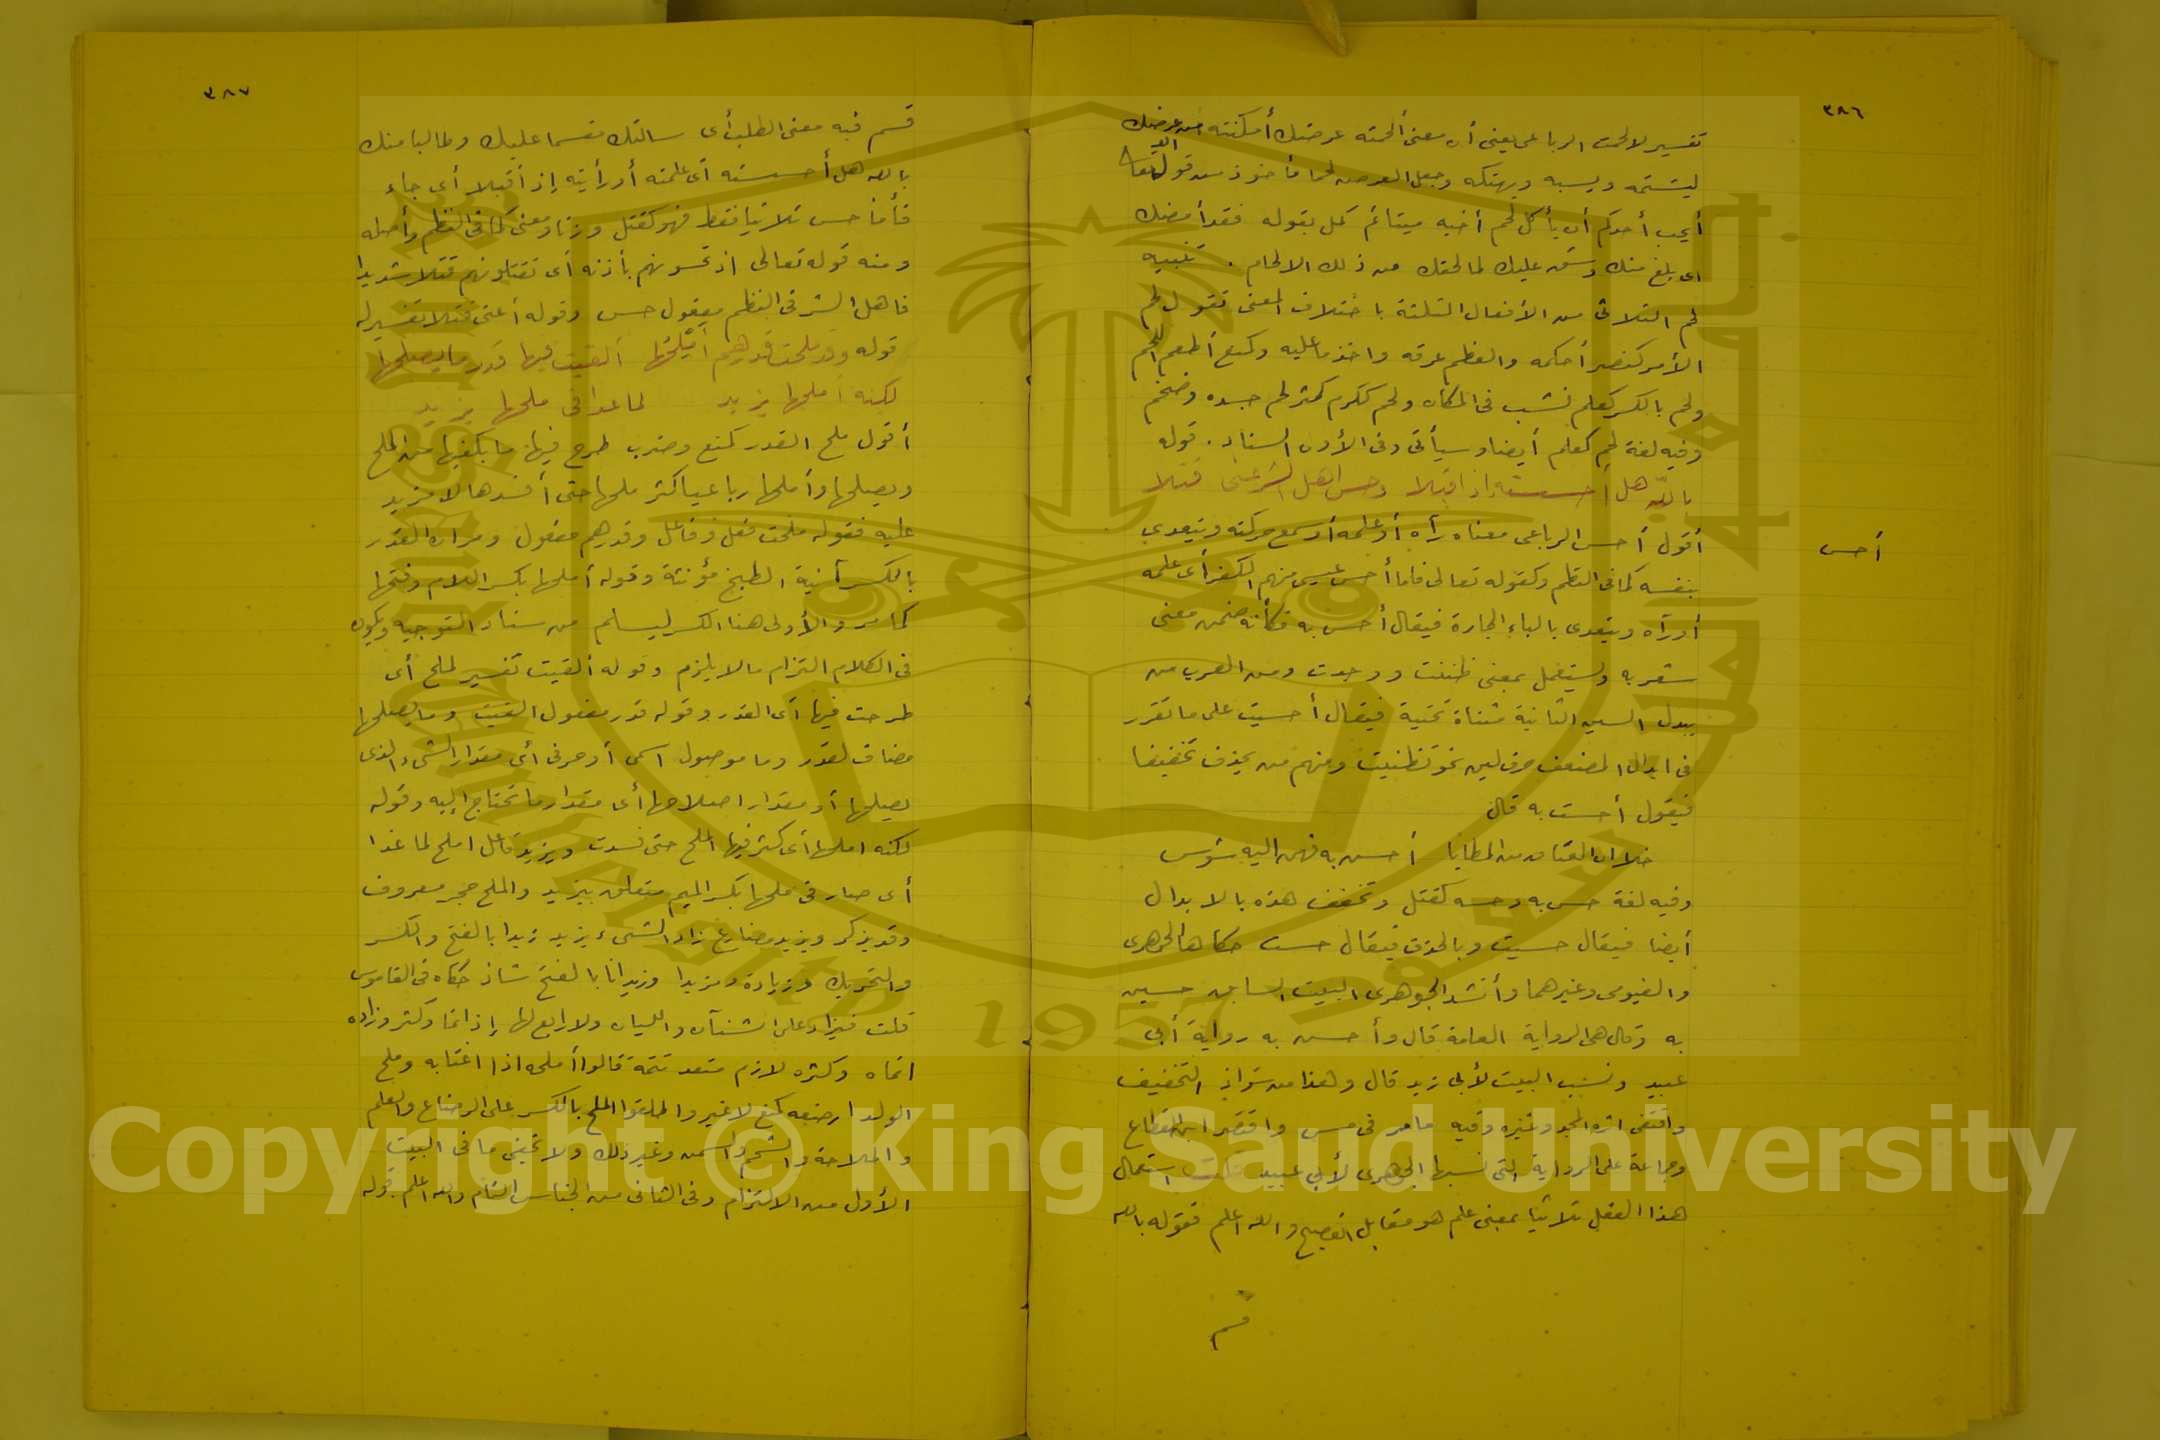 ٣٨٦
تفسير لالحمت الرباعى يعنى أن معنى ألحمته عرضك أمكنته من عرضك
ليشتمه ويسبه ويهتكه وجعل العرض لحما مأخوذ من قوله تعالى
أيحب أحدكم أن يأكل لحم أخيه ميتا ثم كمل بقوله فقد أمضك
اى بلغ منك وشق عليك لما لحقك من ذلك الالحام . تنبيه
لحم الثلاثى من الأفعال المثلثة باختلاف المعنى تقول لحم
الأمر كنصر أحكمه والعظم عرقه واخذ ما عليه وكمنع أطعم اللحم
ولحم بالكسر كعلم نشب فى المكان ولحم ككرم كثر لحم جسده وضخم
وفيه لغة لحم كعلم أيضا وسيأتى وفى الأول السناد . قوله
بالله هل أحسسته إذ اقبلا وحس اهل الشر عنى قتلا
أحس
أقول أحس الرباعى معناه رآه أو علمه أو سمع حركته ويتعدى
بنفسه كما فى النظم وكقوله تعالى فلما أحس عيسى منهم الكفر أى علمه
أو رآه ويتعدى بالباء الجارة فيقال أحس به فكأنه ضمن معنى
شعر به ويستعمل بمعنى ظننت ووجدت ومن العرب من
يبدل السين الثانية مثناة تحتية فيقال أحسيت على ما تقرر
فى ابدال المضعف حرف لين نحو تظنيت ومنهم من يحذف تخفيفا
فيقول أحست به قال
خلا ان العتاق من المطايا أحسن به فهن اليه شوس
وفيه لغة حس به وحسه كقتل وتخفف هذه بالابدال
أيضا فيقال حسيت وبالحذف فيقال حست حكاها الجوهرى
والفيومى وغيرهما وأنشد الجوهرى البيت السابق حسين
به وقال هى الرواية العامة قال وأحسن به رواية أبى
عبيد ونسب البيت لأبى زيد قال وهذا من شواذ التخفيف
واقتفى اثره المجد وغيره وفيه ما مر فى مس واقتصر ابن القطاع
وجماعة على الرواية التى نسبها الجوهرى لأبى عبيد قلت استعمال
هذا الفعل ثلاثيا بمعنى علم هو مقابل الفصيح والله اعلم فقوله بالله
قسم
٣٨٧
قسم فيه معنى الطلب أى سالتك مقسما عليك وطالبا منك
بالله هل أحسسته أى علمته أو رأيته إذ أقبلا أى جاء
فأما حس ثلاثيا فقط فهو كقتل وزنا ومعنى كما فى النظم وأصله
ومنه قوله تعالى اذ تحسونهم بأذنه أى تقتلونهم قتلا شديدا
فاهل الشر فى النظم مفعول حس وقوله أعنى قتلا تفسير له
قوله وقد ملحت قدرهم أملحها ألقيت فيها قدر ما يصلحها
لكنه أملحها يزيد لما غدا فى ملحها يزيد
أقول ملح القدر كمنع وضرب طرح فيها ما يكفيها من الملح
ويصلحها وأملحها رباعيا كثر ملحها حتى أفسدها لا مزيد
عليه فقوله ملحت فعل وفاعل وقدرهم مفعول ومراده القدر
بالكسر آنية الطبخ مؤنثة وقوله أملحها بكسر اللام وفتحها
كما مر والأولى هنا الكسر ليسلم من سناد التوجيه ويكون
فى الكلام التزام ما لا يلزم وقوله ألقيت تفسير لملح أى
طرحت فيها أى القدر وقوله قدر مفعول القيت وما يصلحها
مضاف لقدر وما موصول اسمى أو حرفى أى مقدار الشىء الذى
يصلحها أو مقدار اصلاحها أى مقدار ما تحتاج اليه وقوله
لكنه املحها أى كثر فيها الملح حتى فسدت ويزيد فاعل املح لما غدا
أى صار فى ملحها بكسر الميم متعلق بيزيد والملح حجر معروف
وقد يذكر ويزيد مضارع زاد الشىء يزيد زيدا بالفتح والكسر
والتحريك وزيادة ومزيدا وزيدانا بالفتح شاذ حكاه فى القاموس
قلت فيزاد على شنآن والليان ولا رابع لها إذ انما وكثر وزاده
انماه وكثره لازم متعد تتمة قالوا أملحه اذا اغتابه وملح
الولد ارضعه كمنع لا غير واطلقوا الملح بالكسر على الرضاع والعلم
والملاحة والشحم والسمن وغير ذلك ولا يخفى ما فى البيت
الأول من الالتزام وفى الثانى من الجناس التام والله اعلم . قوله
Copyright © King Saud University
1957